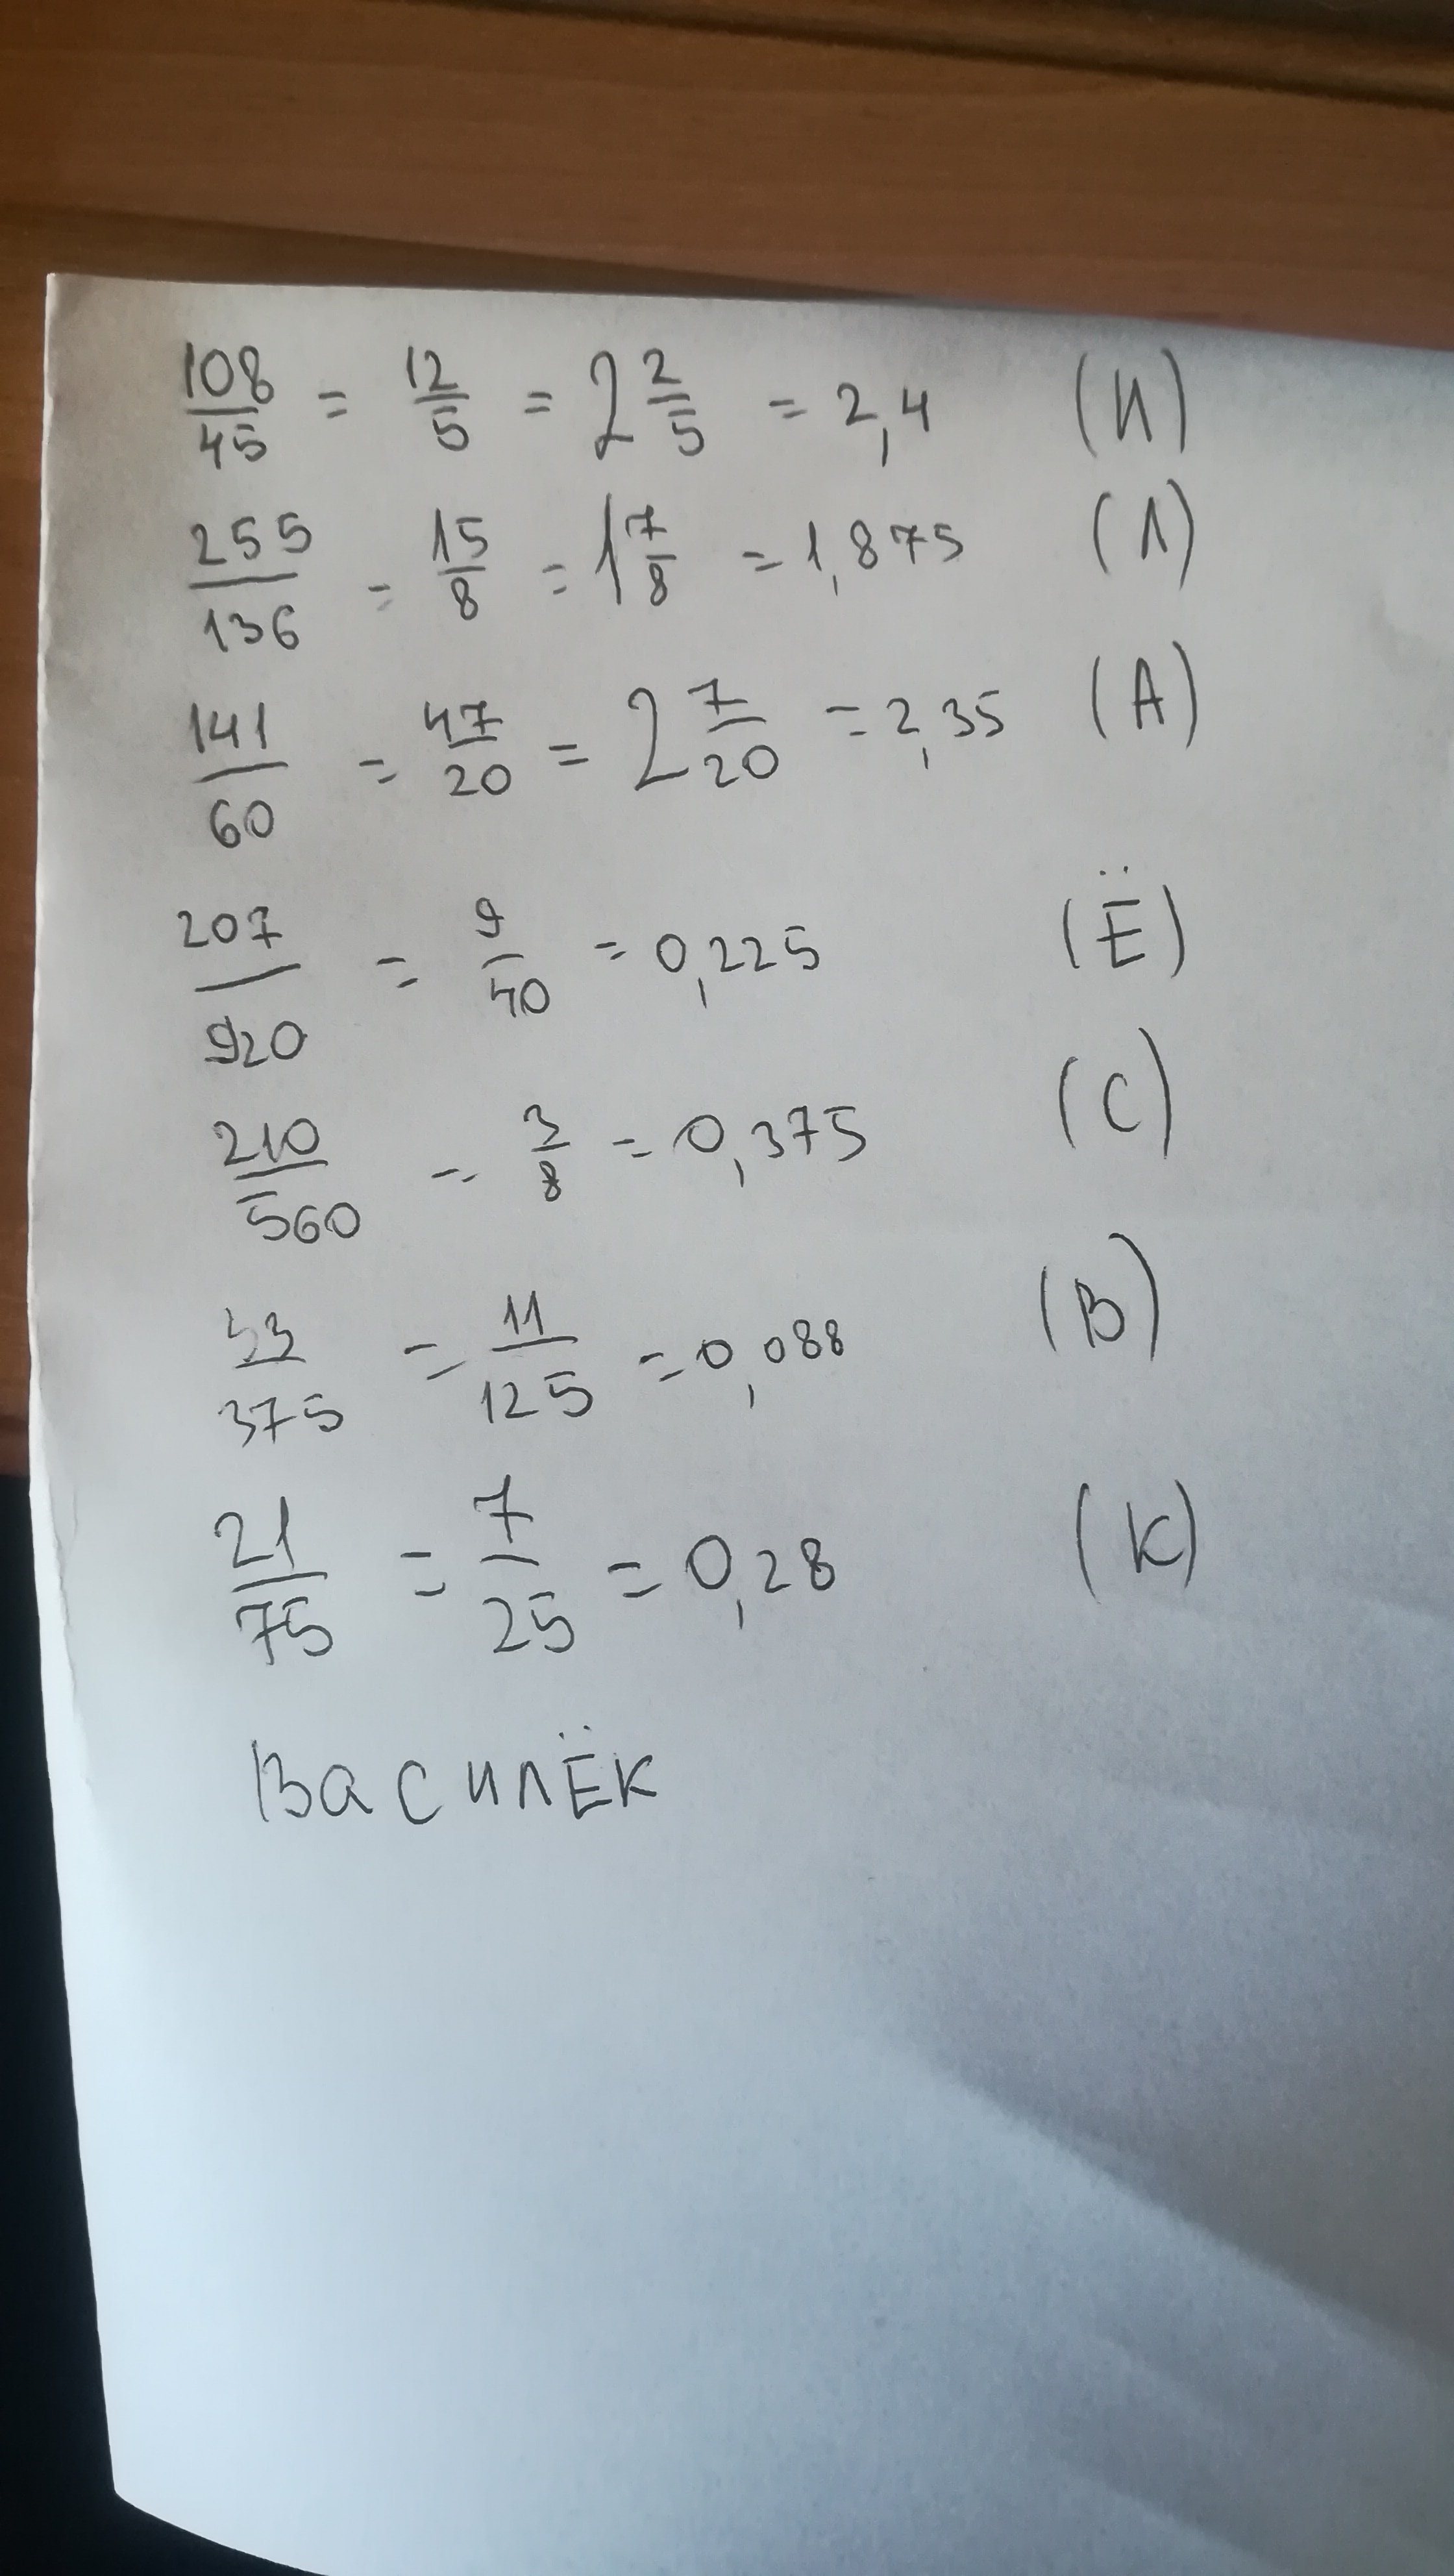 108/45 = 12/5 = 2 2/5 = 2,4 (И)
255/136 = 15/8 = 1 7/8 = 1,875 (Л)
141/60 = 47/20 = 2 7/20 = 2,35 (А)
207/920 = 9/40 = 0,225 (Ё)
210/560 = 3/8 = 0,375 (С)
33/375 = 11/125 = 0,088 (В)
21/75 = 7/25 = 0,28 (К)
ВасилЁк